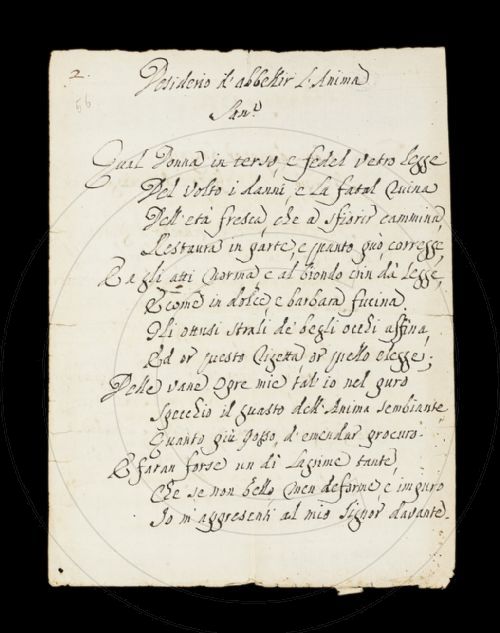 2.
56
Desiderio d'abbellir l'Anima
Son.º
Qual Donna in terso, e fedel vetro legge
Del volto i danni, e la fatal ruina
Dell'età fresca, che a sfiorir cammina,
Restaura in parte, e quanto può corregge,
E a gli atti norma, e al biondo crin dà legge,
E come in dolce, e barbara fucina
Gli ottusi strali de' begli occhi affina,
Ed or questo rigetta, or quello elegge;
Delle vane opre mie tal' io nel puro
Specchio il guasto dell'Anima sembiante
Quanto più posso, d'emendar procuro.
E faran forse un dì lagrime tante,
Che se non bello, men deforme, e impuro
Io m'appresenti al mio Signor davante.